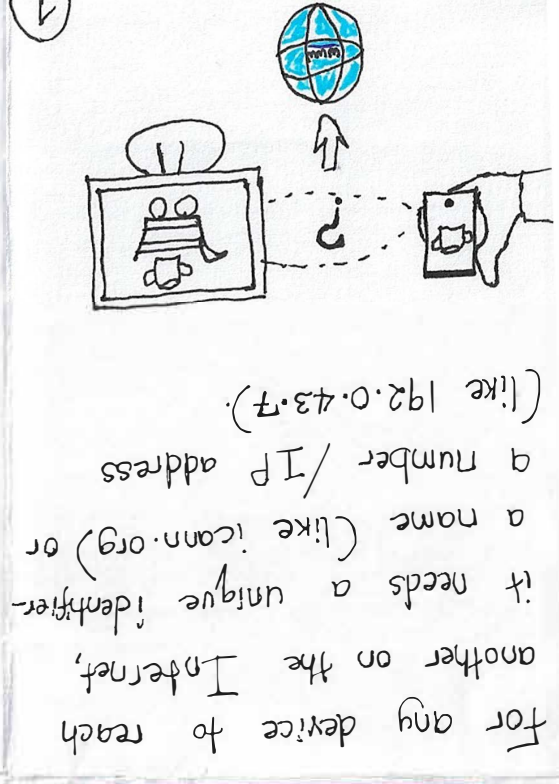 For any device to reach
another on the Internet,
it needs a unique identifier-
a name (like icann.org) or
a number / IP address
(like 192.0.43.7).
?
www
1